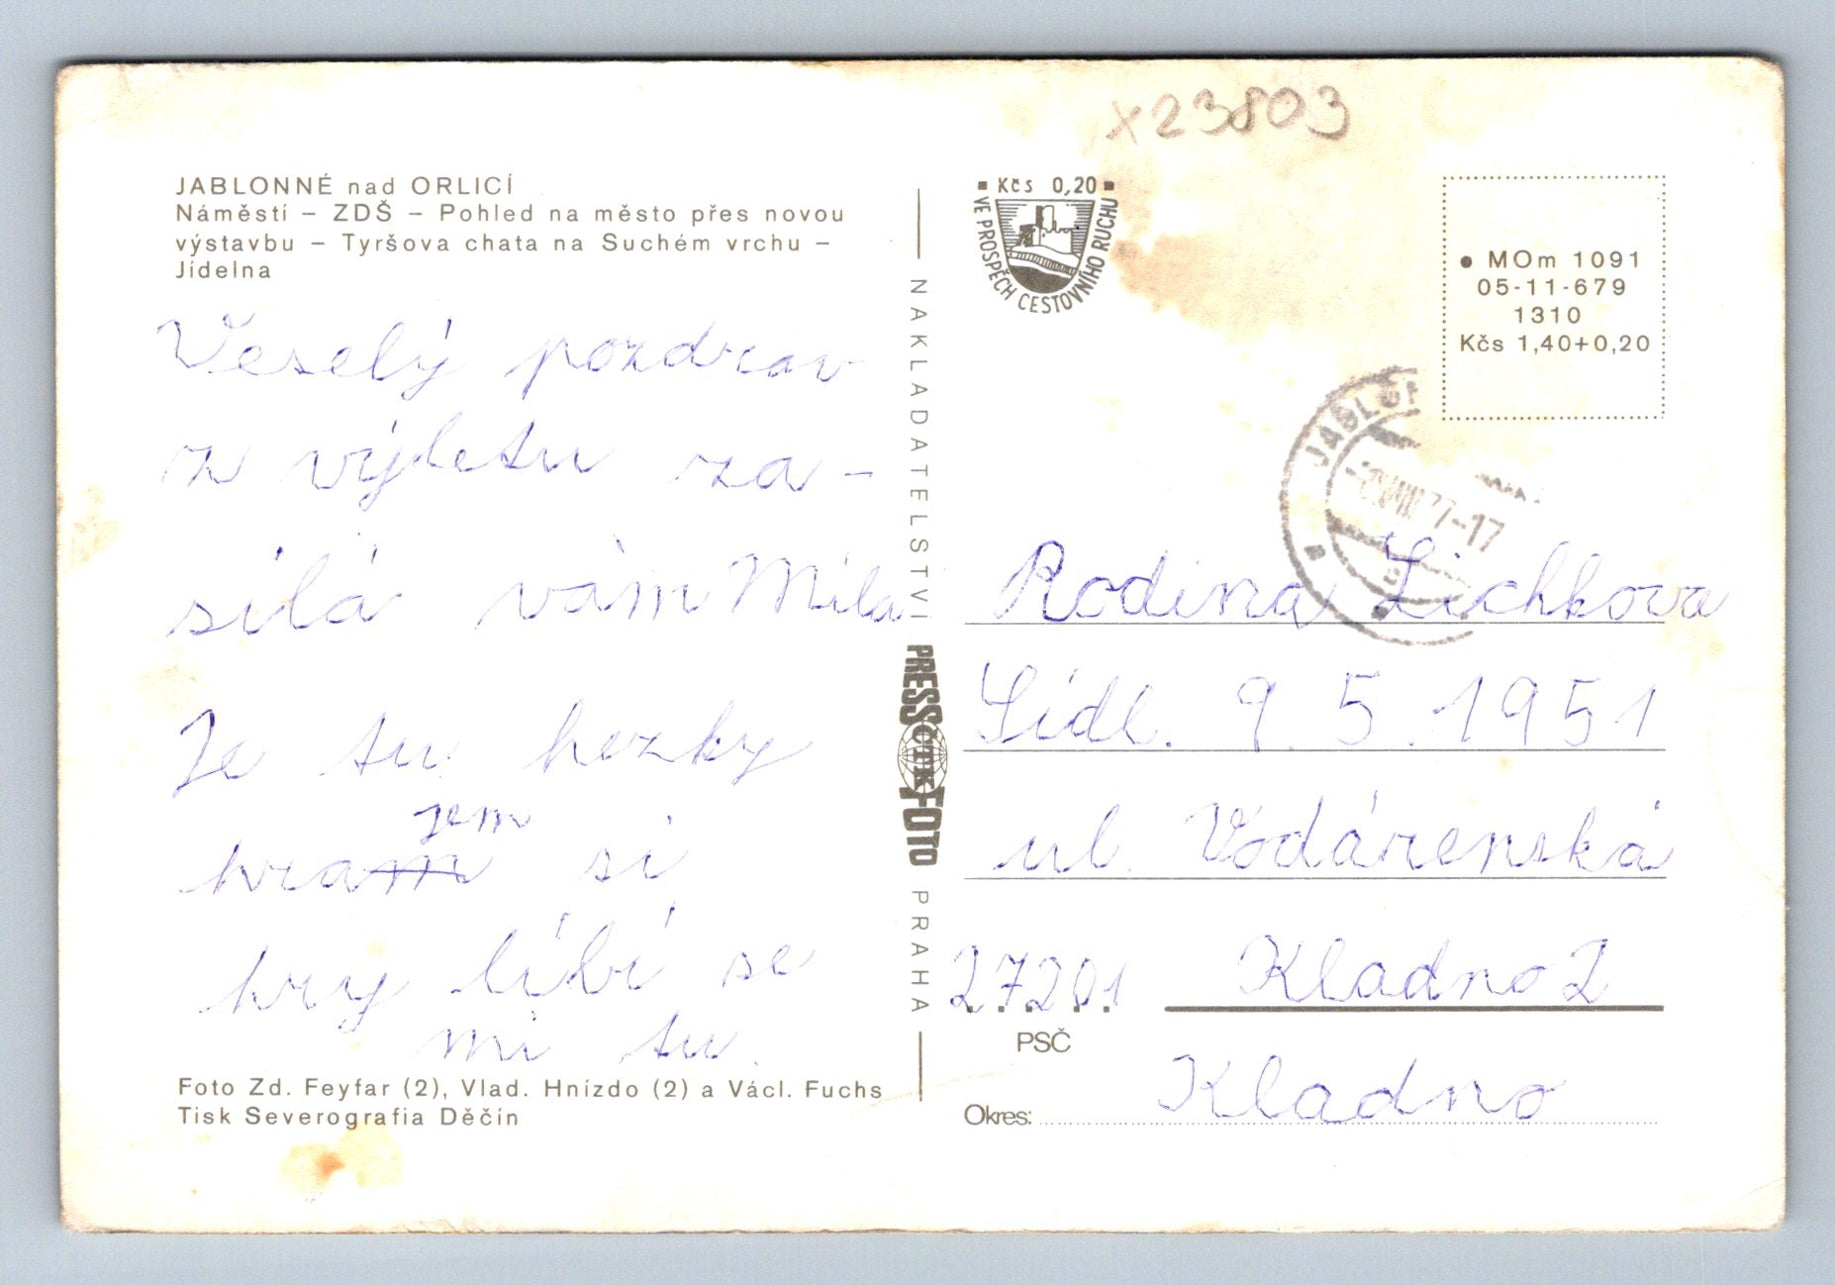 x23803
JABLONNÉ nad ORLICÍ
Náměstí – ZDŠ – Pohled na město přes novou
výstavbu – Tyršova chata na Suchém vrchu –
Jídelna
Veselý pozdrav
z výletu za-
sílá vám Míla
Je tu hezky
jem
hram si
hry líbí se
mi tu.
Foto Zd. Feyfar (2), Vlad. Hnízdo (2) a Václ. Fuchs
Tisk Severografia Děčín
NAKLADATELSTVÍ
PRESSFOTO
ČTK
PRAHA
Kčs 0,20
VE PROSPĚCH CESTOVNÍHO RUCHU
● MOm 1091
05-11-679
1310
Kčs 1,40+0,20
VIII 77-17
Rodina Lichkova
Sídl. 9. 5. 1951
ul. Vodárenská
27201 Kladno 2
PSČ
Okres: Kladno